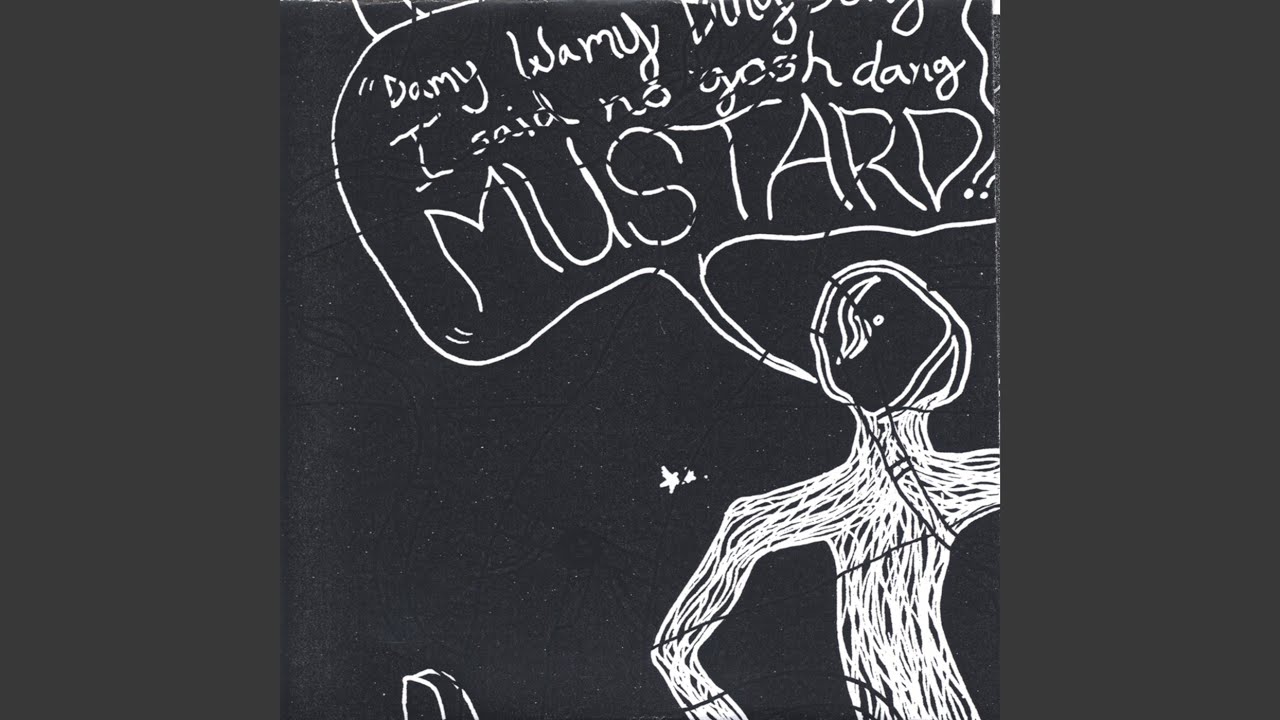 "Damy Wamy Dingy Dong
I said no gosh dang
MUSTARD!!